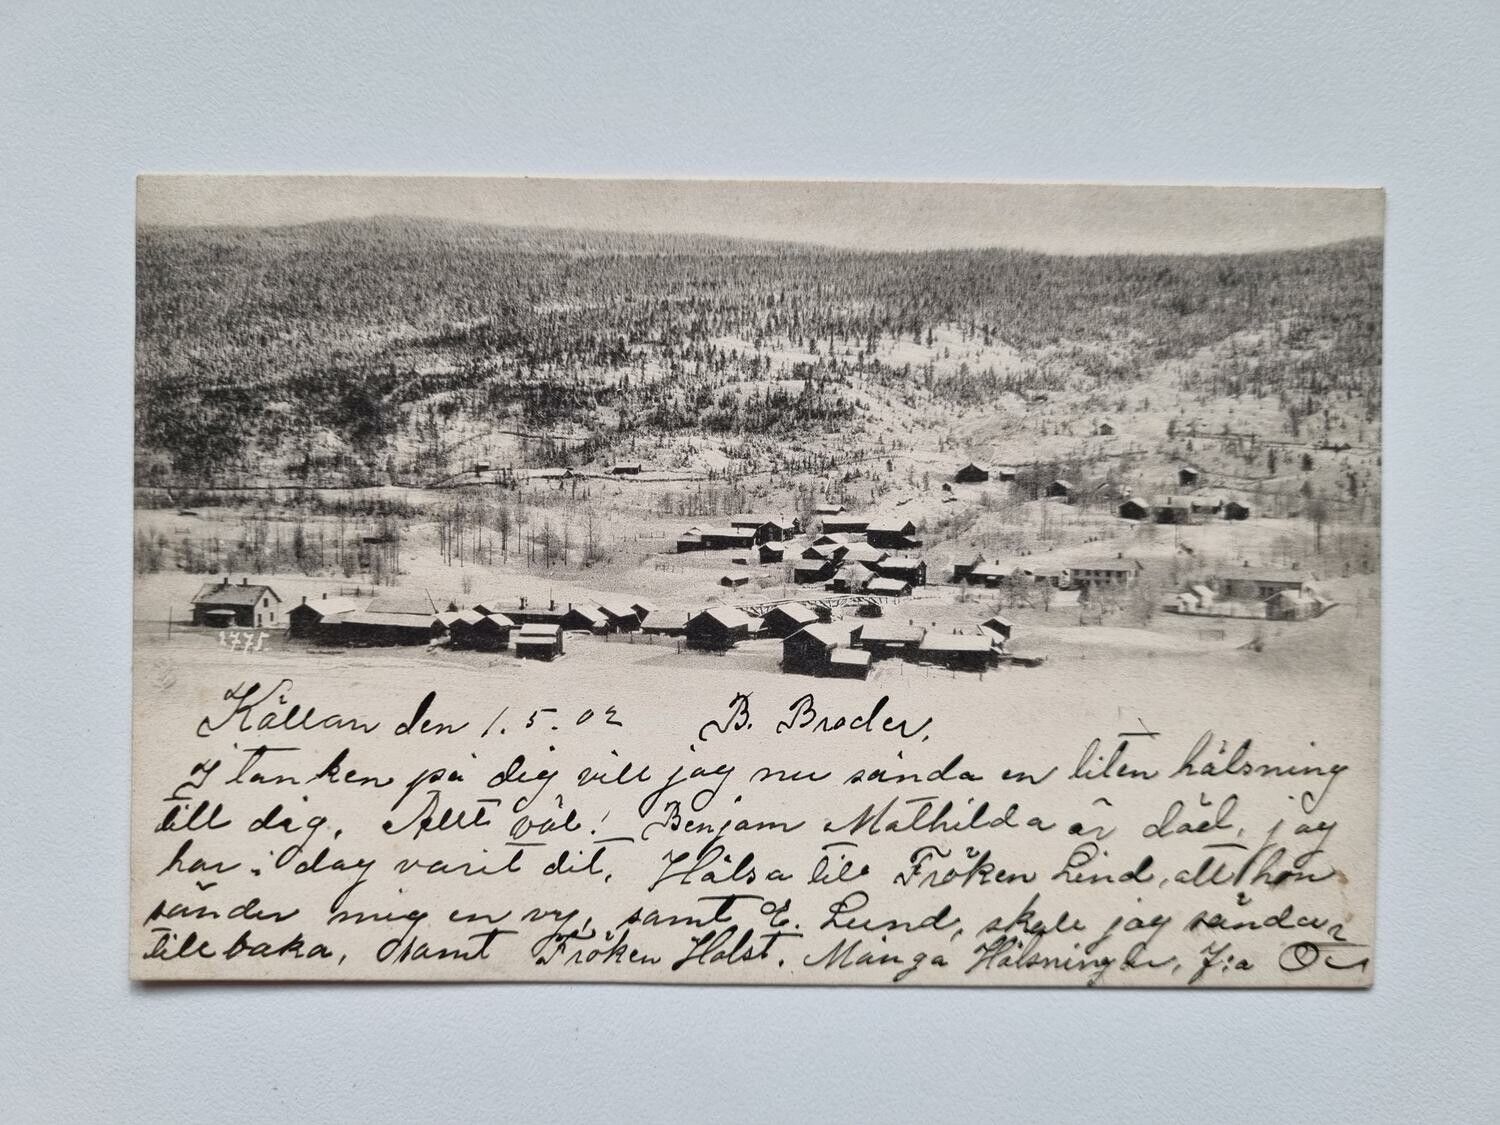 1775.
Källan den 1. 5. 02 B. Broder,
I tanken på dig vill jag nu sända en liten hälsning
till dig. Allt väl! Benjam Mathilda är död, jag
har i dag varit dit. Hälsa till Fröken Lind, att hon
sänder mig en vy, samt E. Lund, skall jag sända
tillbaka, samt Fröken Holst. Många Hälsningar,